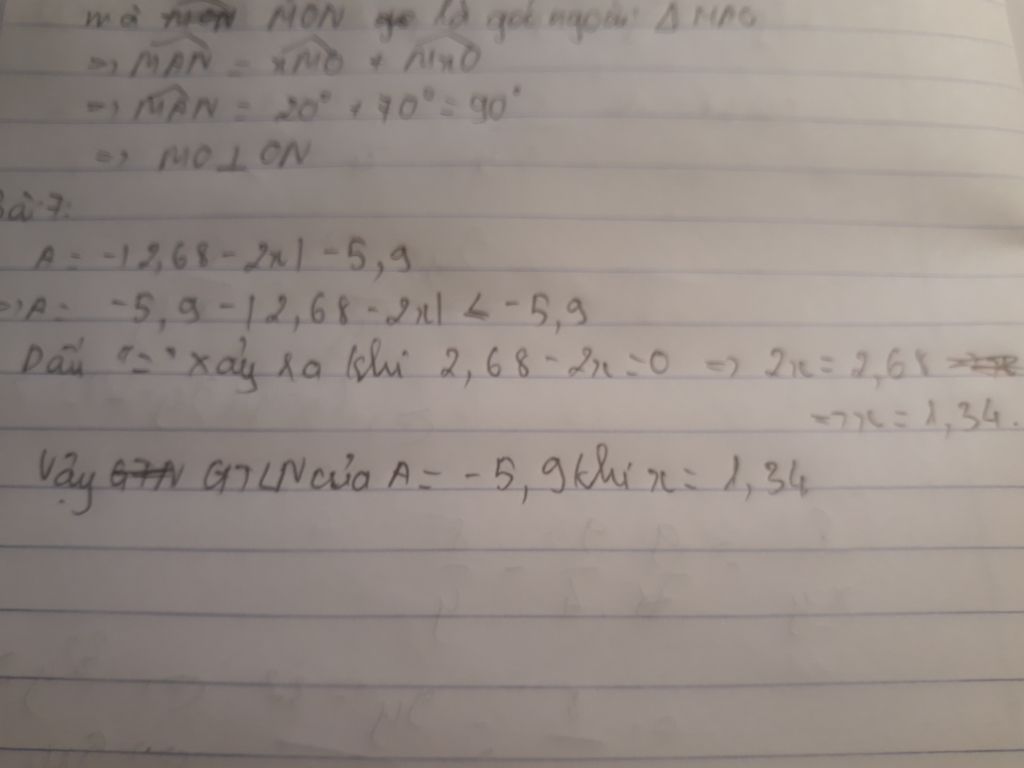 mà MON là góc ngoài Δ MAO
=> MAN = xMO + MxO
=> MAN = 20° + 70° = 90°
=> MO ⊥ ON
Bài 7:
A = -|2,68 - 2x| - 5,9
=> A = -5,9 - |2,68 - 2x| < -5,9
Dấu "=" xảy ra khi 2,68 - 2x = 0 => 2x = 2,68
=> x = 1,34.
Vậy GTLN của A = -5,9 khi x = 1,34